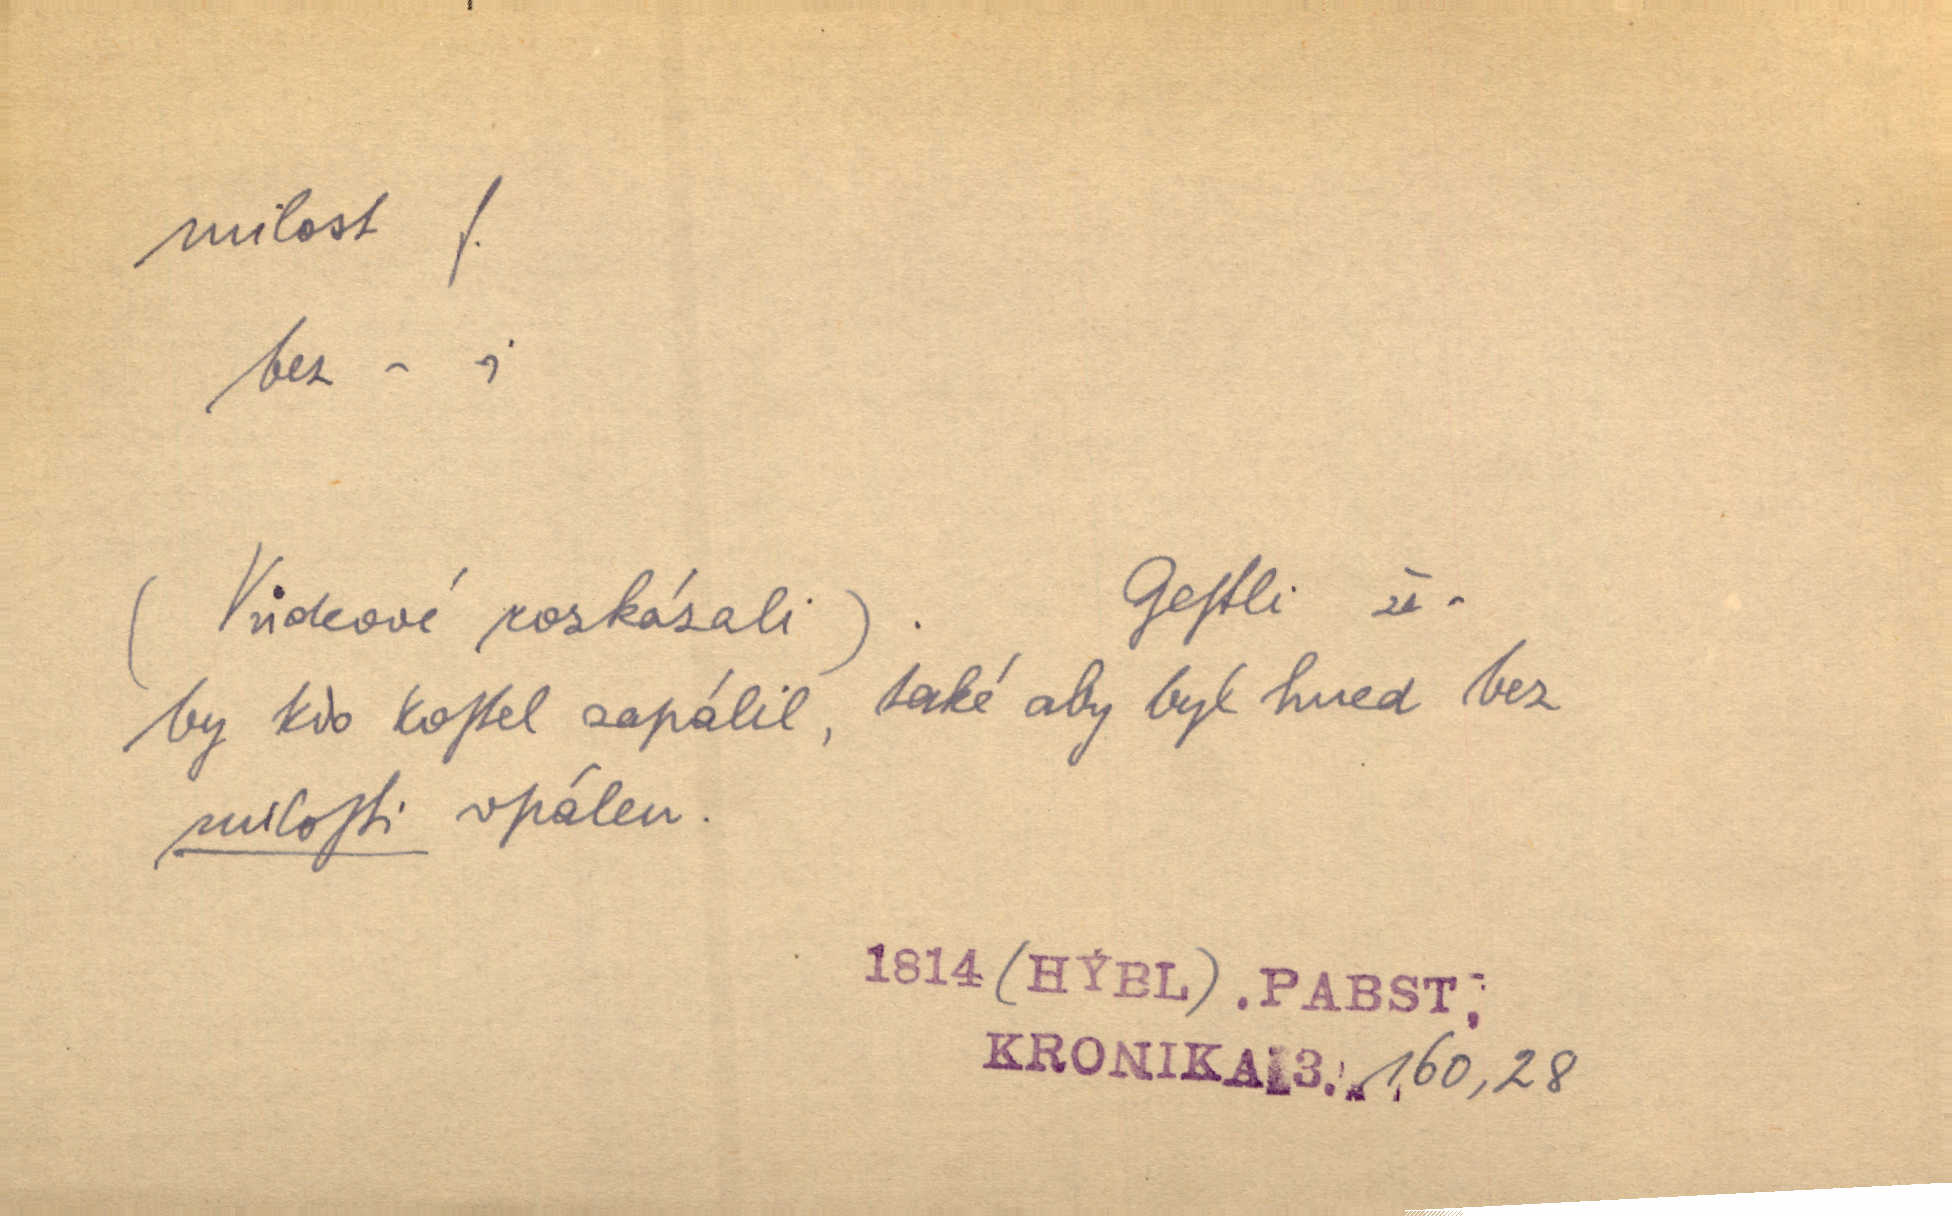 milost f.
bez - i
(Vůdcové rozkázali). Geſtli že-
by kdo koſtel zapálil, také aby byl hned bez
miloſti vpálen.
1814 (HÝBL). PABST,
KRONIKA 3., 160, 28